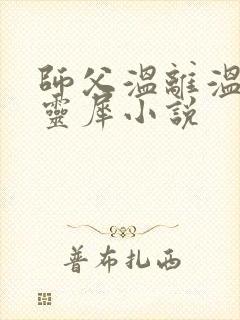 師父溫離溫
靈犀小說
普布扎西